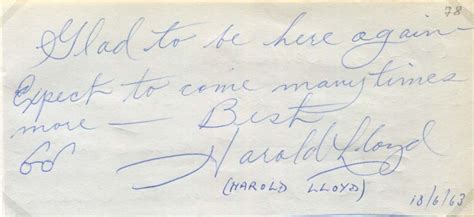 78
Glad to be here again —
Expect to come many times
more — Best
Harold Lloyd
(HAROLD LLOYD)
18/6/63